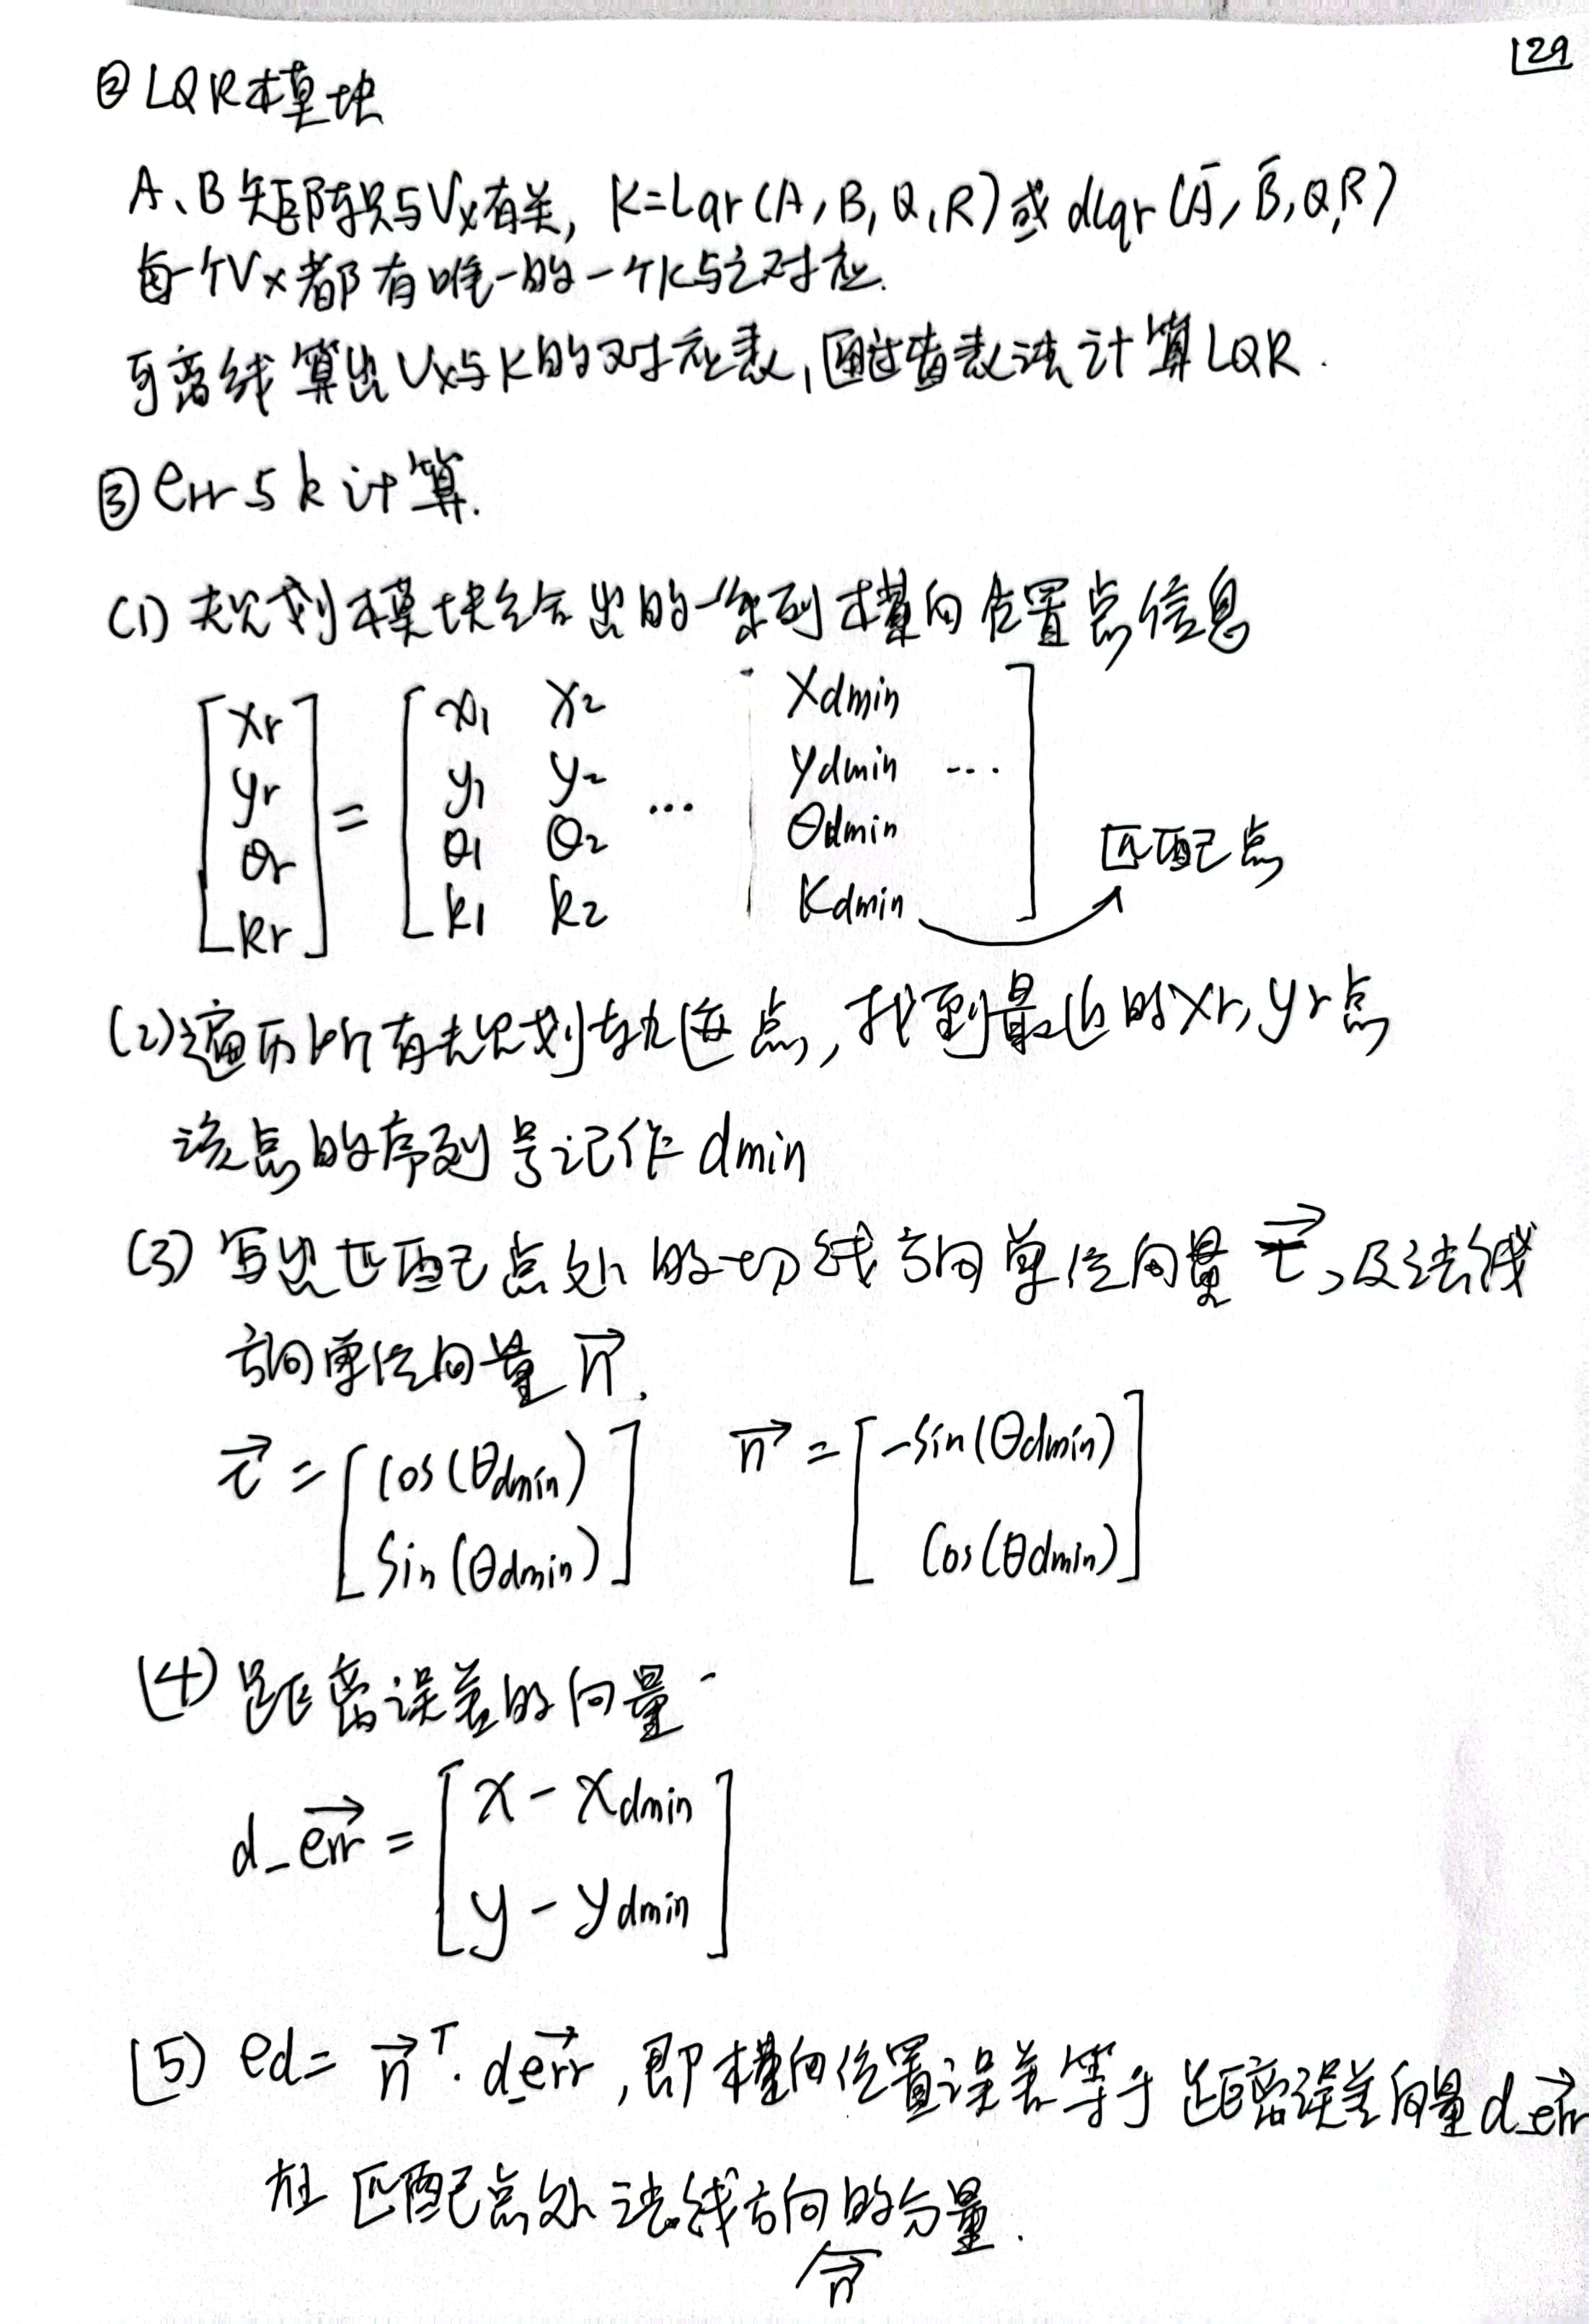 129
② LQR模块
A、B矩阵只与Vx有关, K=Lqr(A, B, Q, R)或 dlqr(Ā, B̄, Q, R)
每一个Vx都有唯一的一个K与之对应.
可离线算出Vx与K的对应表, 通过查表法计算LQR.
③ err与k计算.
(1) 规划模块给出的一系列横向位置点信息
[xr yr θr kr] = [x1 x2 ... xdmin ; y1 y2 ... ydmin ... ; θ1 θ2 ... θdmin ; k1 k2 ... kdmin] 匹配点
(2) 遍历所有规划轨迹点, 找到最近的xr, yr点
该点的序列号记作 dmin
(3) 写出匹配点处的切线方向单位向量 τ⃗, 及法线
方向单位向量 n⃗.
τ⃗ = [cos(θdmin) ; sin(θdmin)]  n⃗ = [-sin(θdmin) ; cos(θdmin)]
(4) 距离误差的向量
d_err⃗ = [x - xdmin ; y - ydmin]
(5) ed = n⃗ᵀ · d_err⃗, 即横向位置误差等于距离误差向量 d_err⃗
在匹配点处法线方向的分量.
n⃗